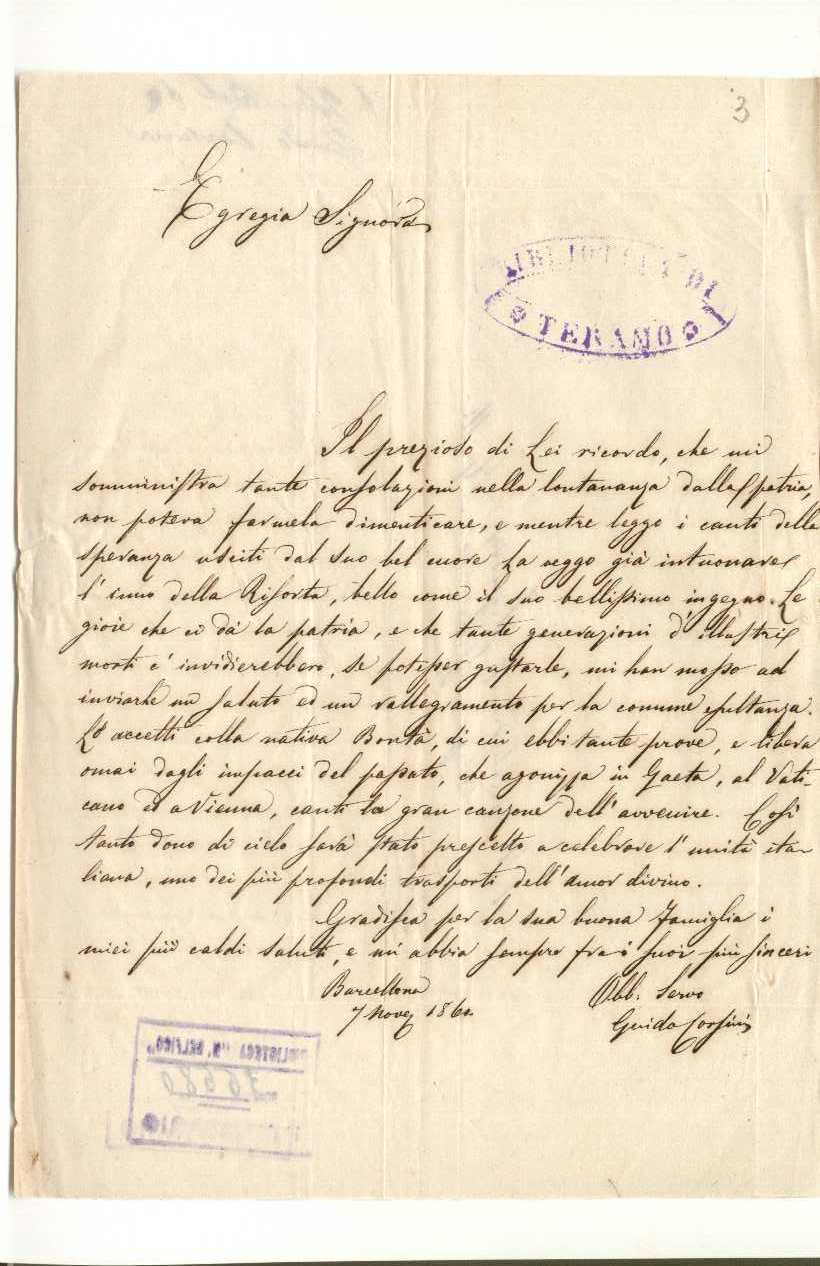 3
Egregia Signora
BIBLIOTECA DI
TERAMO
Il prezioso di Lei ricordo, che mi
somministra tante consolazioni nella lontananza dalla patria,
non poteva farmela dimenticare, e mentre leggo i canti della
speranza usciti dal suo bel cuore La veggo già intuonare
l'inno della Risorta, bello come il suo bellissimo ingegno. Le
gioie che ci dà la patria, e che tante generazioni d'illustri
morti c'invidierebbero, se potesser gustarle, mi han mosso ad
inviarle un saluto ed un rallegramento per la comune esultanza.
Lo accetti colla nativa Bontà, di cui ebbi tante prove, e libera
omai dagli impacci del passato, che agonizza in Gaeta, al Vati-
cano ed a Vienna, canti la gran canzone dell'avvenire. Così
tanto dono di cielo sarà stato prescelto a celebrare l'unità ita-
liana, uno dei più profondi trasporti dell'amor divino.
Gradisca per la sua buona Famiglia i
miei più caldi saluti, e m'abbia sempre fra i suoi più sinceri
Barcellona
Obb. Servo
7 Nov
Guido Corsini
BIBLIOTECA "M. DELFICO"